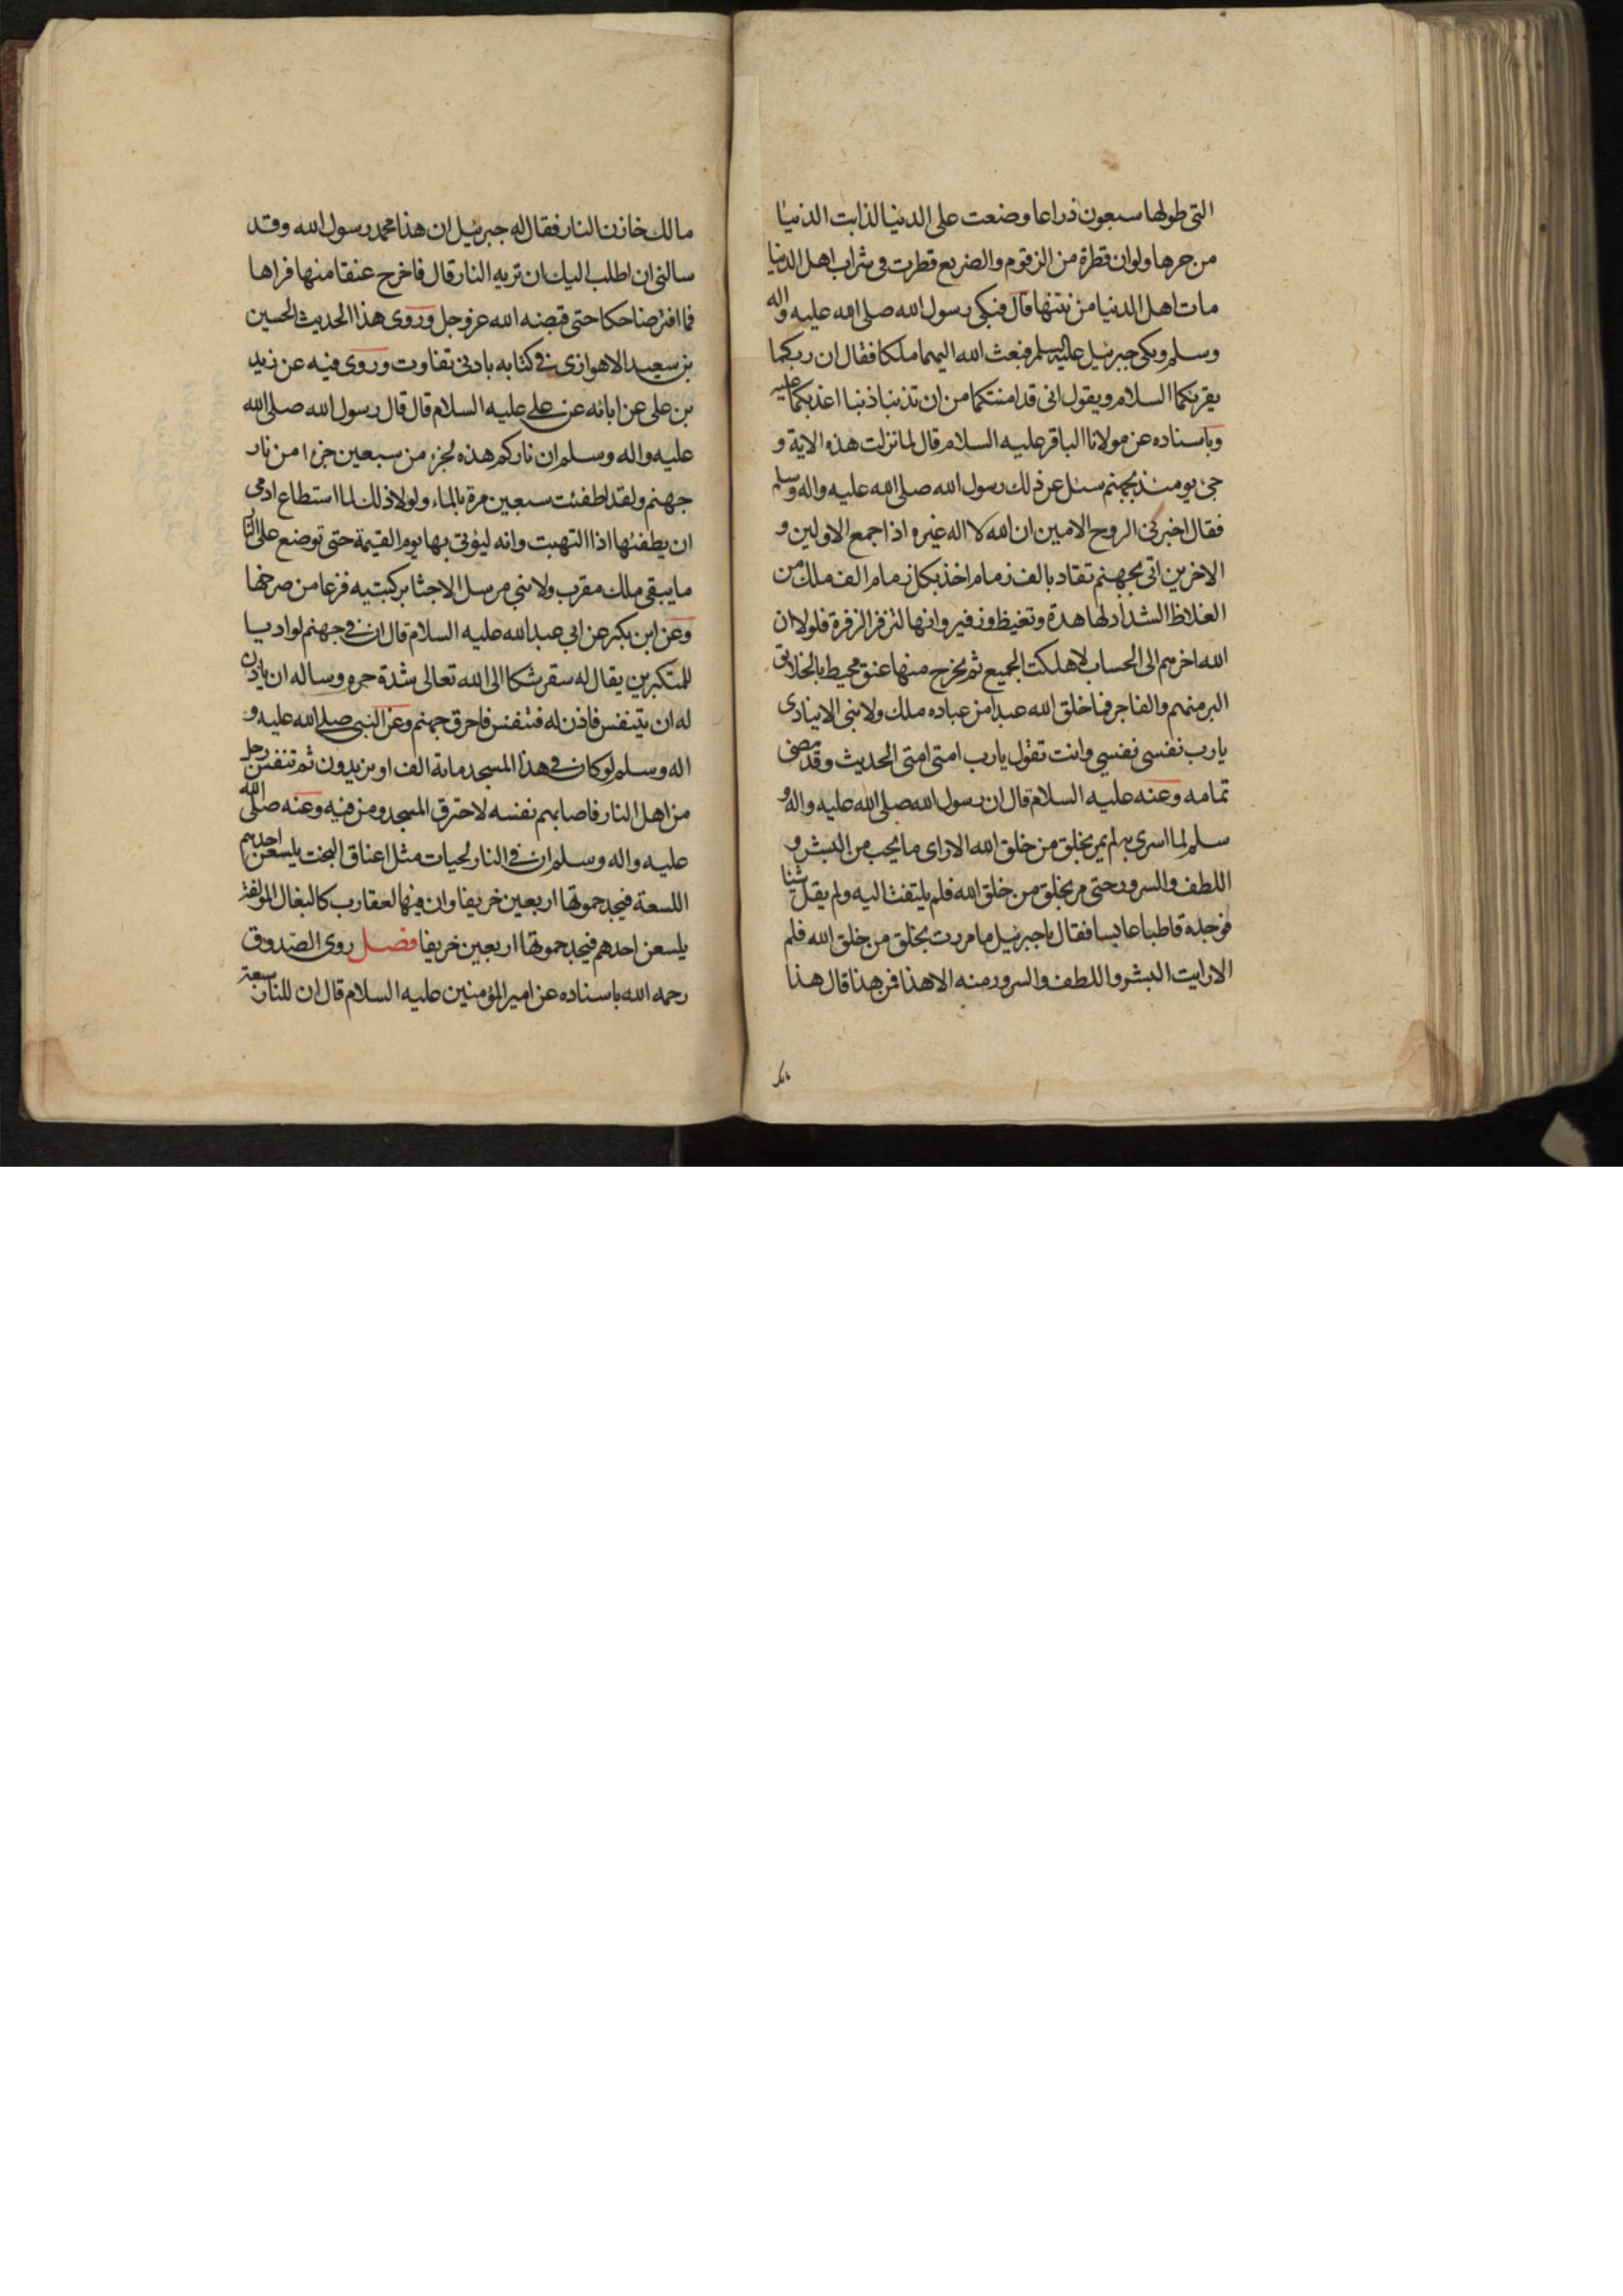 التى طولها سبعون ذراعا وضعت على الدنيا لذابت الدنيا
من حرها ولوان قطرة من الزقوم والضريع قطرت فى شراب اهل الدنيا
مات اهل الدنيا من نتنها قال فبكى رسول الله صلى الله عليه واله
وسلم وبكى جبرئيل عليه السلم فبعث الله اليهما ملكا فقال ان ربكما
يقربكما السلام ويقول انى قد امنتكما من ان تذنبا ذنبا اعذبكما عليه
وباسناده عن مولانا الباقر عليه السلام قال لما نزلت هذه الاية و
جئ يومئذ بجهنم سئل عن ذلك رسول الله صلى الله عليه واله وسلم
فقال اخبرنى الروح الامين ان الله لا اله غيره اذا جمع الاولين و
الاخرين اتى بجهنم تقاد بالف زمام اخذ بكل زمام الف ملك من
الغلاظ الشداد لها هدة وتغيظ وزفير وانها لتزفر الزفرة فلولا ان
الله اخرهم الى الحساب لاهلكت الجميع ثم يخرج منها عنق محيط بالخلايق
البر منهم والفاجر فما خلق الله عبدا من عباده ملك ولا نبى الا ينادى
يارب نفسى نفسى وانت تقول يارب امتى امتى الحديث وقد مضى
تمامه وعنه عليه السلام قال ان رسول الله صلى الله عليه واله و
سلم لما اسرى به لم يمر بخلق من خلق الله الا راى ما يحب من البشر و
اللطف والسرور حتى مر بخلق من خلق الله فلم يلتفت اليه ولم يقل شيئا
فوجده قاطبا عابسا فقال يا جبرئيل ما مررت بخلق من خلق الله فلم
الا رايت البشر واللطف والسرور منه الا هذا فمن هذا قال هذا
مالك
مالك خازن النار فقال له جبرئيل ان هذا محمد رسول الله وقد
سالنى ان اطلب اليك ان تريه النار قال فاخرج عنقا منها فراها
فما افتر ضاحكا حتى قبضه الله عز وجل وروى هذا الحديث الحسين
بن سعيد الاهوازى فى كتابه بادنى تفاوت وروى فيه عن زيد
بن على عن ابائه عن على عليه السلام قال قال رسول الله صلى الله
عليه واله وسلم ان ناركم هذه لجزء من سبعين جزءا من نار
جهنم ولقد اطفئت سبعين مرة بالماء ولولا ذلك لما استطاع ادمى
ان يطفئها اذا التهبت وانه ليؤتى بها يوم القيمة حتى توضع على النار
ما يبقى ملك مقرب ولا نبى مرسل الا جثا بركبتيه فزعا من صرخها
وعن ابن بكير عن ابى عبد الله عليه السلام قال ان فى جهنم لواديا
للمتكبرين يقال له سقر شكا الى الله تعالى شدة حره وساله ان ياذن
له ان يتنفس فاذن له فتنفس فاحرق جهنم وعن النبى صلى الله عليه و
اله وسلم لو كان فى هذا المسجد مائة الف او يزيدون ثم تنفس رجل
من اهل النار فاصابهم نفسه لاحترق المسجد ومن فيه وعنه صلى الله
عليه واله وسلم ان فى النار لحيات مثل اعناق البخت يلسعن احديهم
اللسعة فيجد حموتها اربعين خريفا وان فيها لعقارب كالبغال الموكفة
يلسعن احدهم فيجد حموتها اربعين خريفا فصل روى الصدوق
رحمه الله باسناده عن امير المؤمنين عليه السلام قال ان للنار سبعة